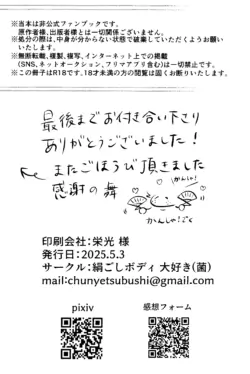 ※当本は非公式ファンブックです。
原作者様、出版者様とは一切関係ございません。
※処分の際は、中身が分からない状態で破棄していただくようお願い
いたします。
※無断転載、複製、複写、インターネット上での掲載
(SNS、ネットオークション、フリマアプリ含む)は一切禁止です。
※この冊子はR18です。18才未満の方の閲覧は固くお断りいたします。
最後までお付き合い下さり
ありがとうございました！
またごほうび頂きました
感謝の舞
かんしゃ！
かんしゃ！
印刷会社：栄光 様
発行日：2025.5.3
サークル：絹ごしボディ 大好き(菌)
mail:chunyetsubushi@gmail.com
pixiv
感想フォーム